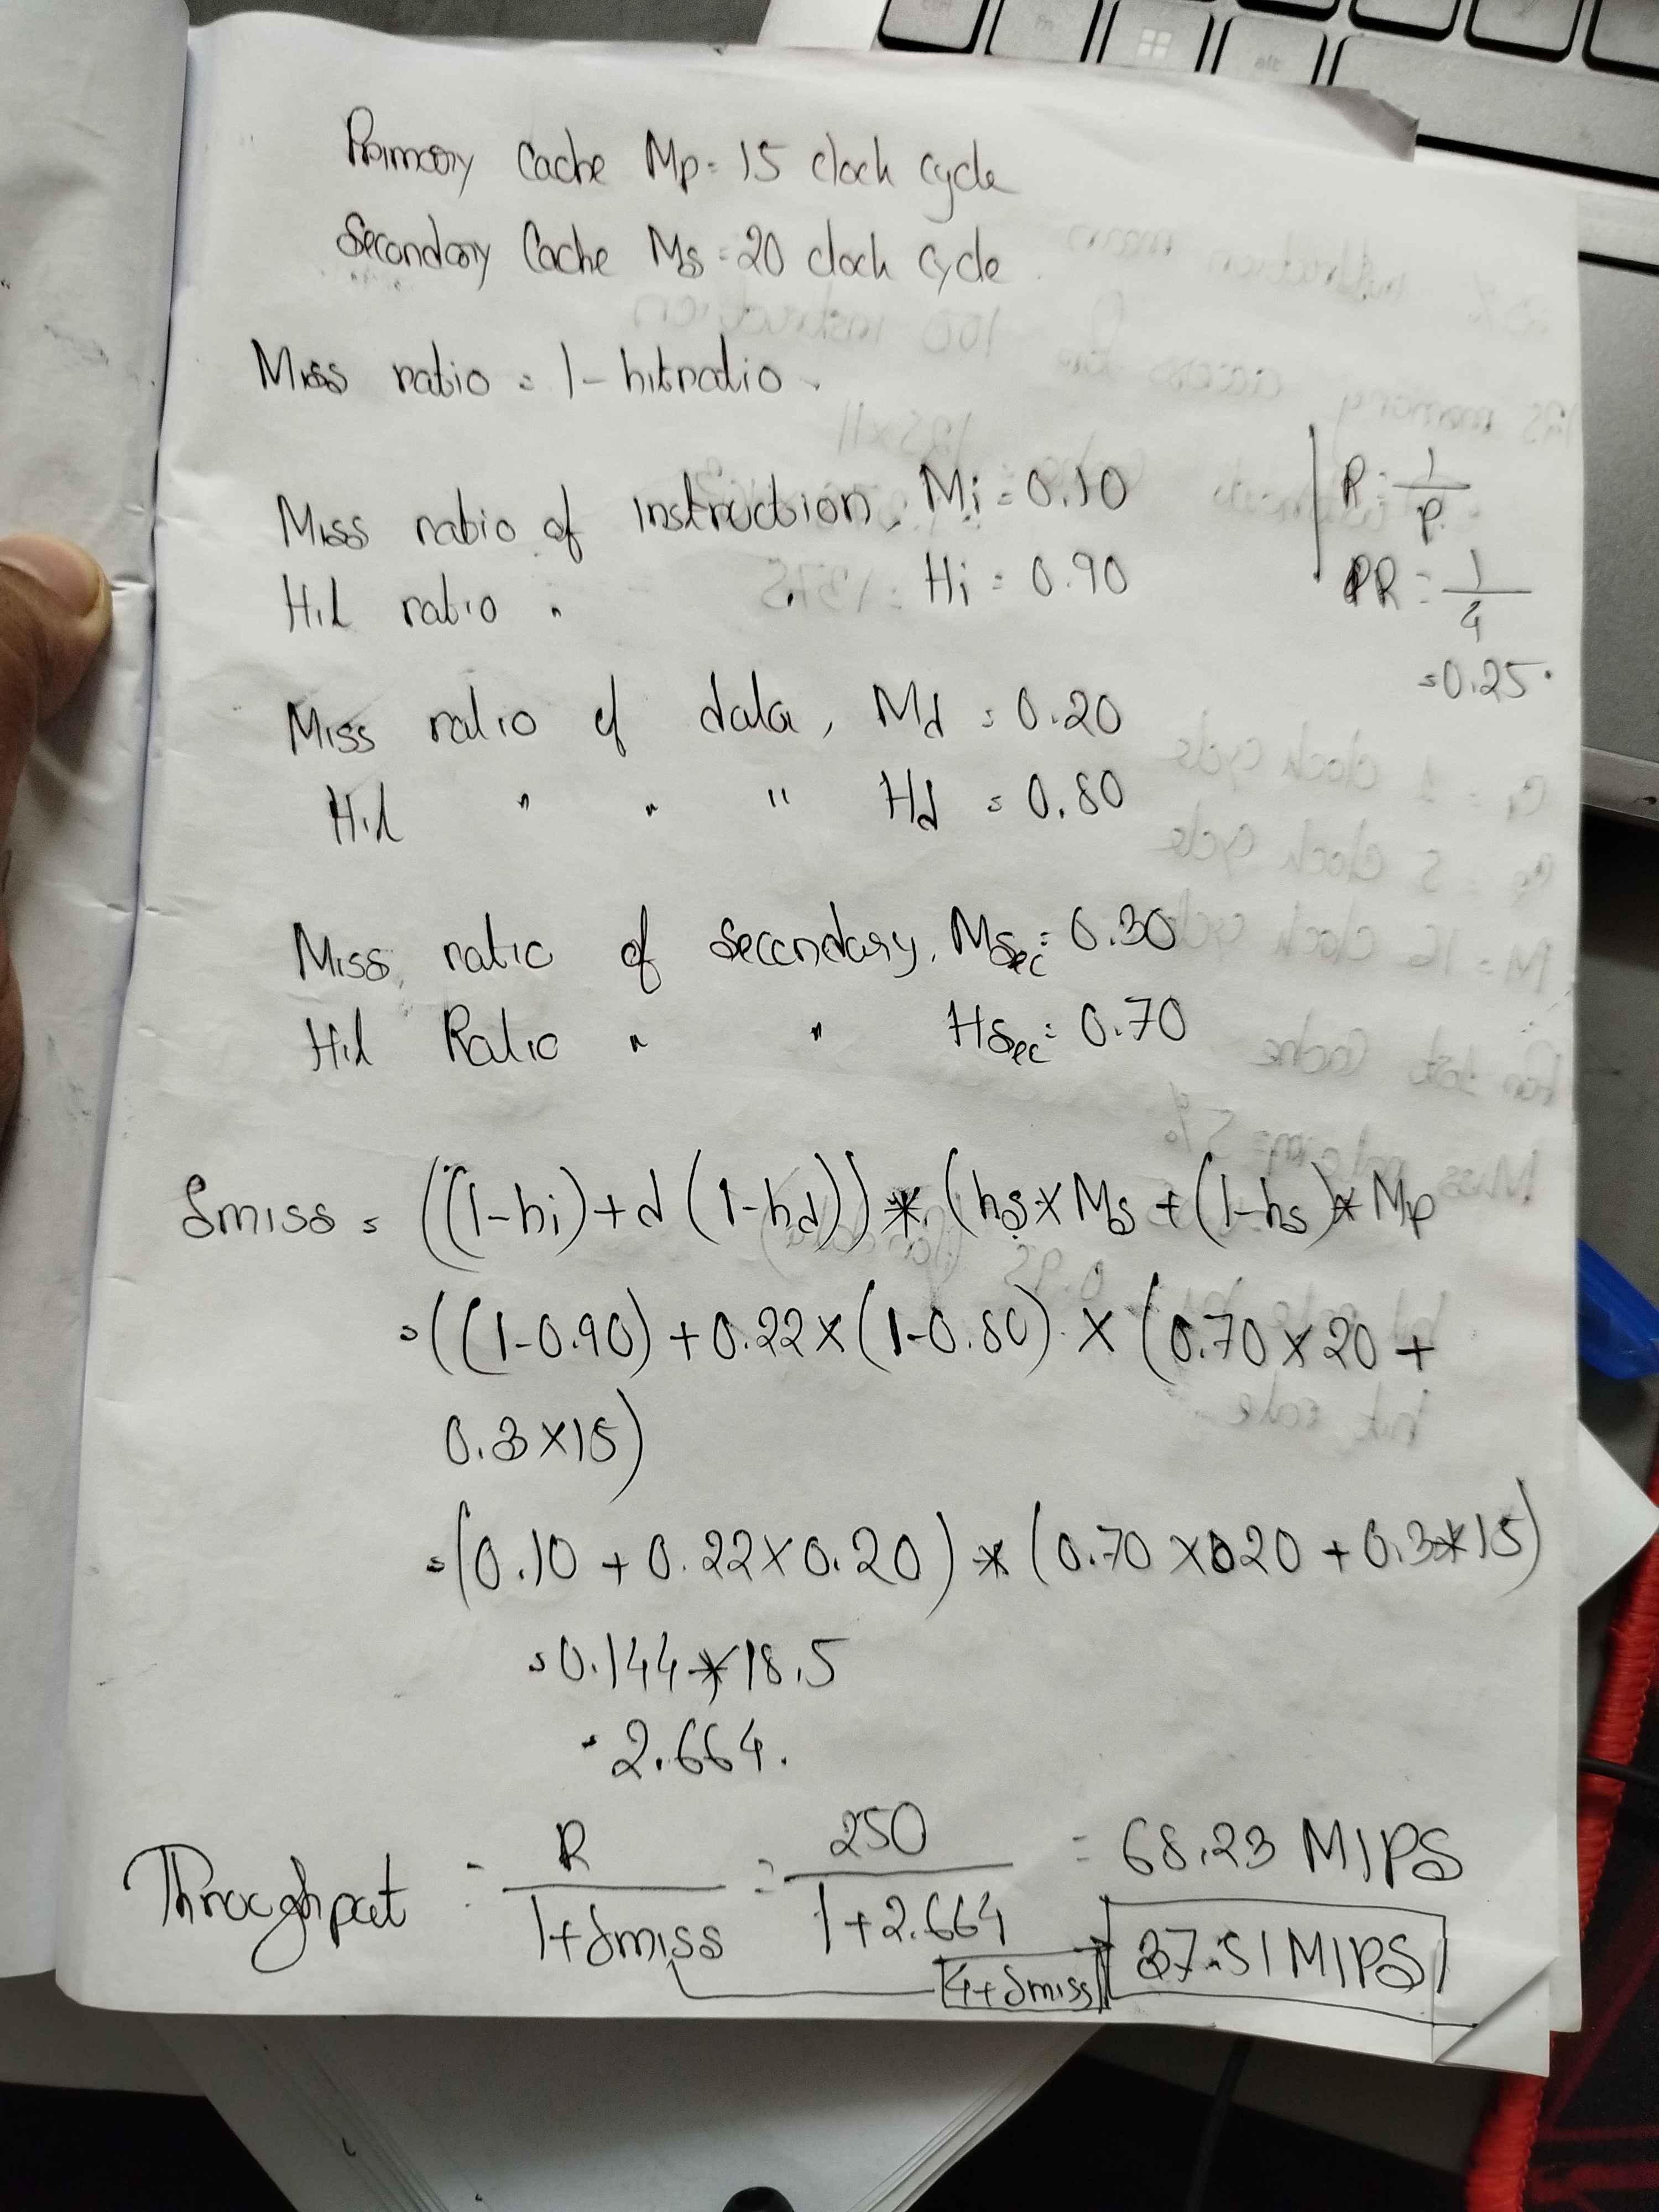 Primary Cache Mp = 15 clock cycle
Secondary Cache Ms = 20 clock cycle
Miss ratio = 1 - hitratio.
Miss ratio of instruction, Mi = 0.10
Hit ratio " Hi = 0.90
R = 1/P
PR = 1/4
= 0.25.
Miss ratio of data, Md = 0.20
Hit " " " Hd = 0.80
Miss ratio of secondary, Msec = 0.30
Hit Ratio " " Hsec = 0.70
δmiss = ((1-hi)+d(1-hd)) * (hs × Ms + (1-hs) * Mp
= ((1-0.90) + 0.22 × (1-0.80) × (0.70 × 20 +
0.3 × 15)
= (0.10 + 0.22 × 0.20) * (0.70 × 20 + 0.3 * 15)
= 0.144 * 18.5
= 2.664.
Throughput = R/1+δmiss = 250/1+2.664 = 68.23 MIPS
4+δmiss 37.51 MIPS